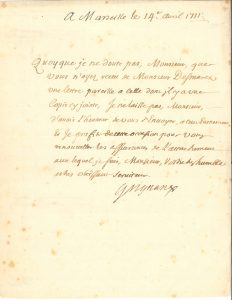 A Marseille le 14e. avril 1711
Quoyque je ne doute pas, Monsieur, que
vous n'ayez receu de Monsieur Desmarets
une lettre pareille a celle dont il y a une
Copie cy jointe, Je ne laisse pas, Monsieur,
d'avoir l'honneur de vous l'envoyer,
Et Je profite de cette occasion pour vous
renouveller les assurances de l'attachement
avec lequel je suis, Monsieur, Votre tres humble
et tres obeissant serviteur
Grignan